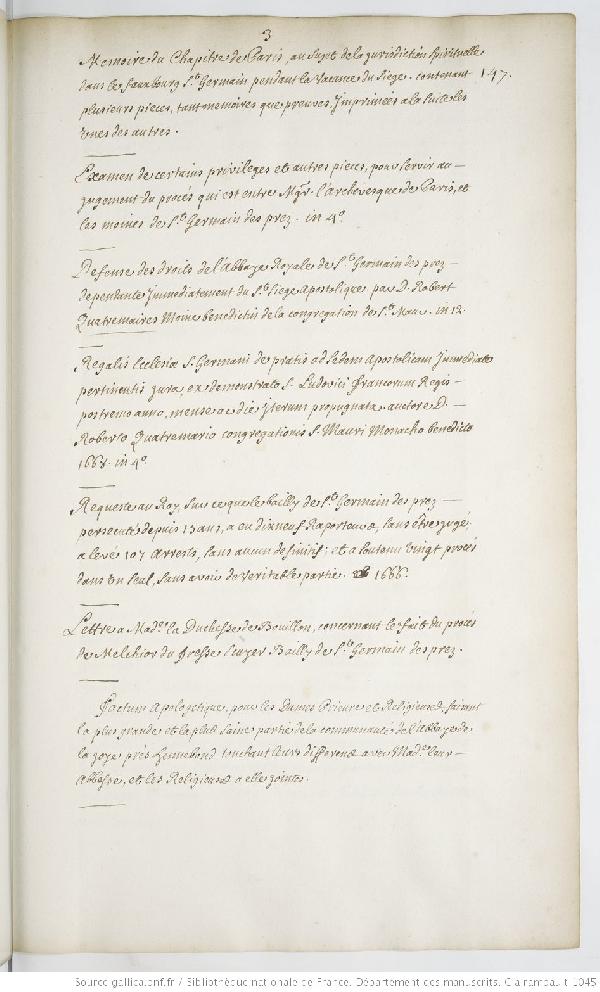 3
Memoire du Chapitre de Paris, au sujet de la jurisdiction spirituelle
dans le fauxbourg St. Germain pendant la vacance du Siege. contenant 147.
plusieurs pieces, tant memoires que preuves, Imprimées a la suite les
Unes des autres.
Examen de certains privileges et autres pieces, pour servir au-
jugement du procés qui est entre Mgr. l'archevesque de Paris, et
les moines de St. Germain des prez. in 4o.
Defense des droits de l'abbaye Royale de St. Germain des prez-
dependante Immediatement du St. Siege Apostolique par D. Robert
Quatremaires Moine benedictin de la congregation de St. Maur. in 12.
Regalis Ecclesiæ S. Germani de pratis ad sedem Apostolicam Immediate
pertinentis jura, ex demonstrato S. Ludovici francorum Regis-
postremo anno, mense ac die, Iterum propugnata auctore D.-
Roberto Quatremario congregationis S. Mauri Monacho benedicto
1668. in 4o.
Requeste au Roy, sur ce que le bailly de St. Germain des prez-
persecuté depuis 13 ans, a eu dixneuf Raporteurs, sans être jugé,
a levé 107 arrests, sans aucun definitif; et a soutenu vingt procés
dans un seul, sans avoir de veritable partie. 1666.
Lettre a Made. la Duchesse de Bouillon, concernant le fait du procés
de Melchior du fresse Bailly de St. Germain des prez.
Factum Apologetique, pour les Dames Prieure et Religieuses, faisant
la plus grande et la plus saine partie de la communauté de l'Abbaye de
la joye prés hennebond touchant leurs differends avec Made. leur-
Abbesse, et les Religieuses a elle jointes.
Source gallica.bnf.fr / Bibliothèque nationale de France. Département des manuscrits. Clairambault 1045